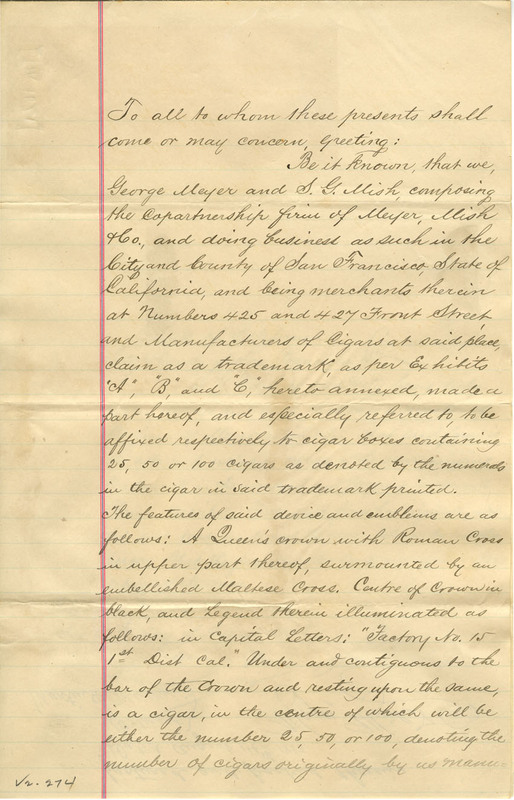 To all to whom these presents shall
come or may concern, Greeting:
Be it known, that we,
George Meyer and S. G. Mish, composing
the Copartnership firm of Meyer, Mish
& Co., and doing business as such in the
City and County of San Francisco State of
California, and being merchants therein
at Numbers 425 and 427 Front Street,
and Manufacturers of Cigars at said place,
claim as a trademark, as per Exhibits
"A", "B", and "C", hereto annexed, made a
part hereof, and especially referred to, to be
affixed respectively to cigar boxes containing
25, 50 or 100 cigars as denoted by the numerals
in the cigar in said trademark printed.
The features of said device and emblems are as
follows: A Queen's crown with Roman Cross
in upper part thereof, surmounted by an
embellished Maltese Cross. Centre of Crown in
black, and Legend therein illuminated as
follows: in Capital Letters: "Factory No. 15
1st Dist Cal." Under and contiguous to the
bar of the Crown and resting upon the same,
is a cigar, in the centre of which will be
either the number 25, 50, or 100, denoting the
number of cigars originally by us manu-
V2-274